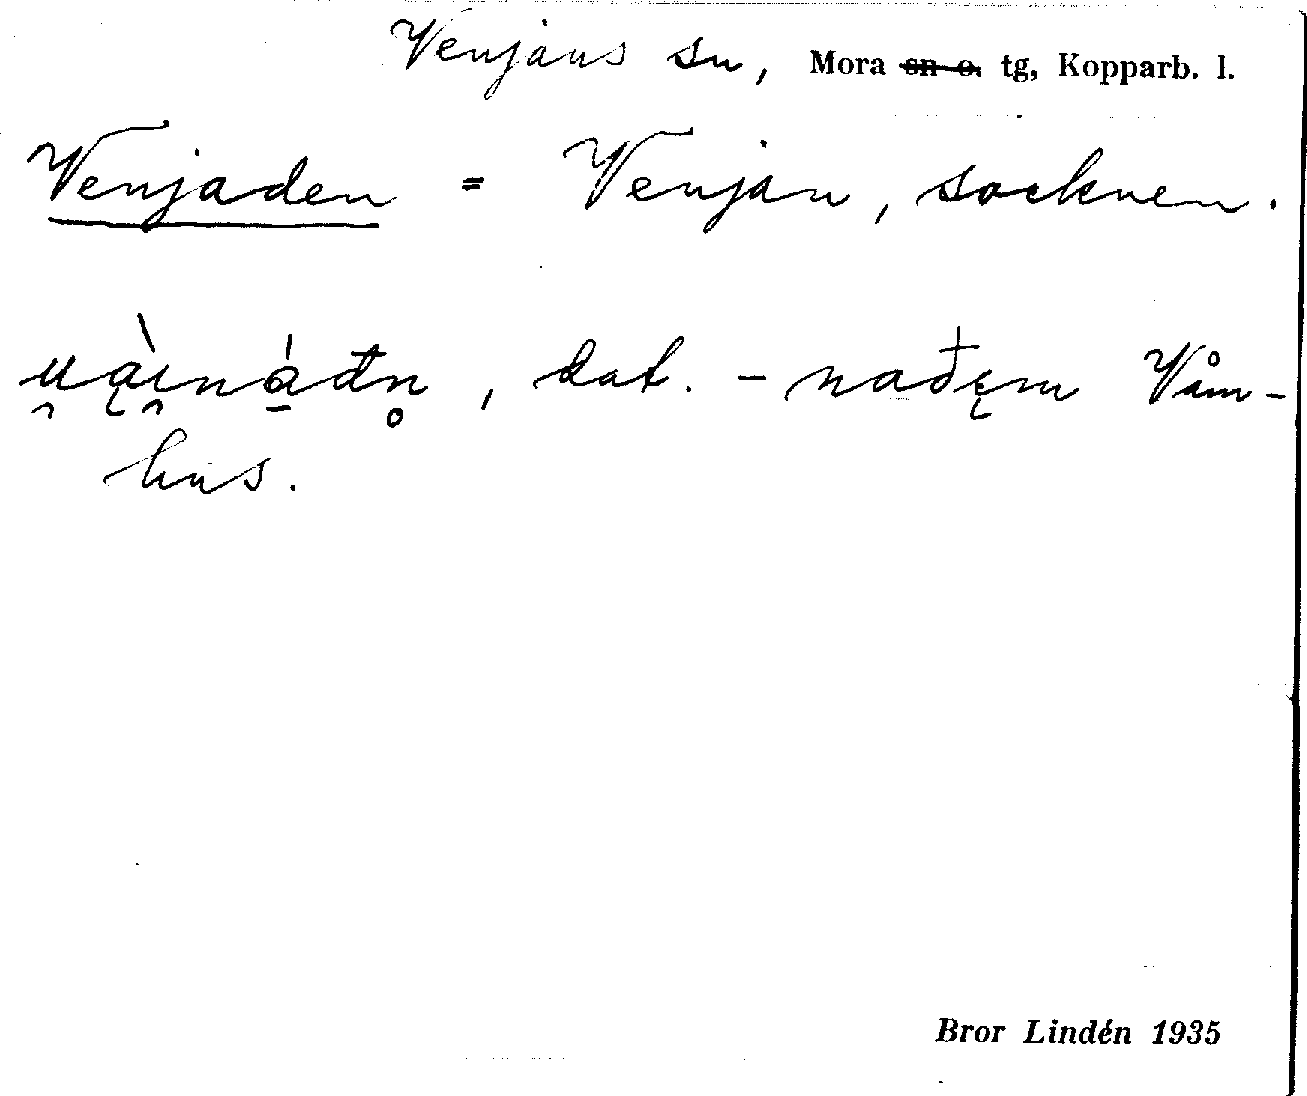 Venjans sn, Mora ~~sn o.~~ tg, Kopparb. l.
Venjaden = Venjan, socknen.
u̯ą̀ı̯ná̱đn̥, dat. -nađęm Våm-
hus.
Bror Lindén 1935